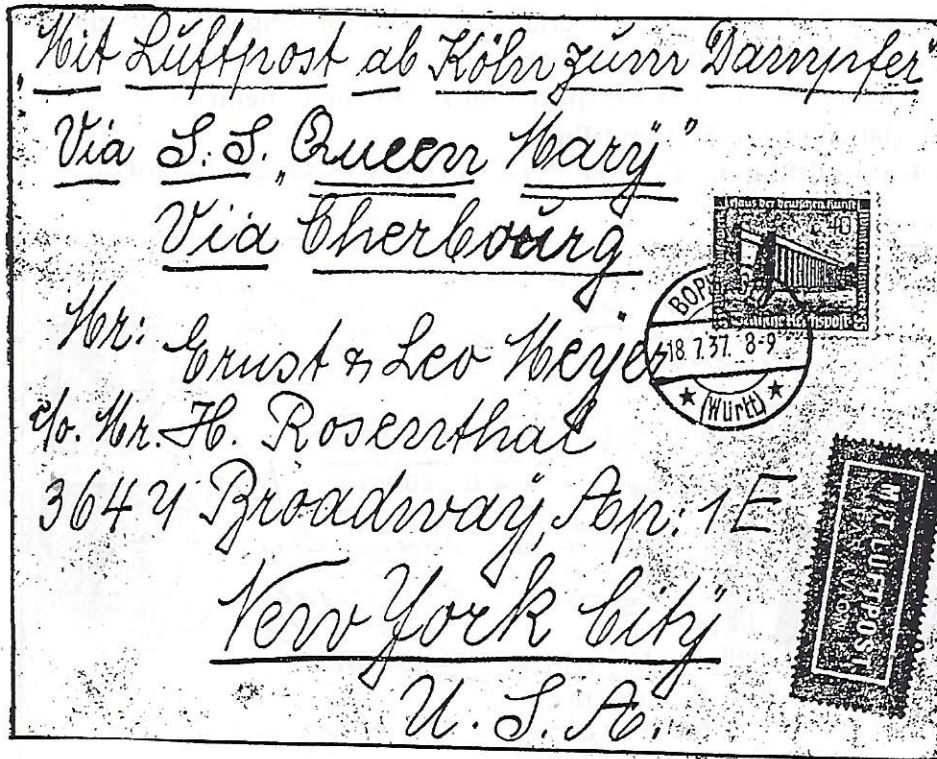 „Mit Luftpost ab Köln zum Dampfer"
Via S.S. „Queen Mary"
Via Cherbourg
Haus der Deutschen Kunst
40
Deutsche Reichspost
18.7.37. 8-9
(Württ)
Mr: Ernst & Leo Meyer
c/o. Mr. H. Rosenthal
3644 Broadway, Ap: 1E
New York City
U.S.A.
MIT LUFTPOST
PAR AVION